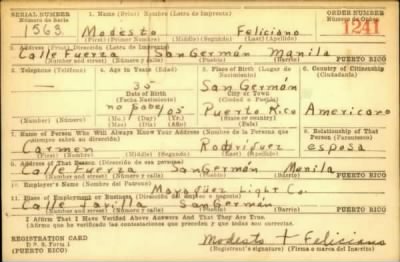 SERIAL NUMBER
Número de Serie
1. Name (Print) Nombre (Letra de Imprenta)
ORDER NUMBER
Número de Orden
1563 Modesto Feliciano 1241
(First) (Primer Nombre) (Middle) (Segundo) (Last) (Apellido)
2. Address (Print) Dirección (Letra de Imprenta)
Calle Fuerza San Germán Manila
(Number and street) (Número y calle) (Town) (Pueblo) (Barrio) PUERTO RICO
3. Telephone (Teléfono)
4. Age in Years (Edad)
5. Place of Birth (Lugar de Nacimiento)
6. Country of Citizenship (Ciudadanía)
— 35 San Germán
Date of Birth
(Fecha Nacimiento)
City or Town
(Ciudad o Pueblo)
Puerto Rico Americano
(Mo.) (Day) (Yr.)
(Mes) (Día) (Año)
(State or country)
7. Name of Person Who Will Always Know Your Address (Nombre de la Persona que siempre sabrá su dirección)
8. Relationship of That Person (Parentesco)
Carmen Rodríguez esposa
(First) (Primer Nombre) (Middle) (Segundo) (Last) (Apellido)
9. Address of That Person (Dirección de esa persona)
Calle Fuerza San Germán Manila
(Number and street) (Número y calle) (Town) (Pueblo) (Barrio) PUERTO RICO
10. Employer's Name (Nombre del Patrono)
Mayagüez Light Co.
11. Place of Employment or Business
San Germán
(Number and street) (Número y calle) (Town) (Pueblo) (Barrio) PUERTO RICO
I Affirm That I Have Verified Above Answers And That They Are True.
(Afirmo que he verificado las contestaciones que preceden y que todas son correctas).
REGISTRATION CARD
D. S. S. Form 1
PUERTO RICO
Modesto Feliciano
(Registrant's signature) (Firma o marca del Inscrito)